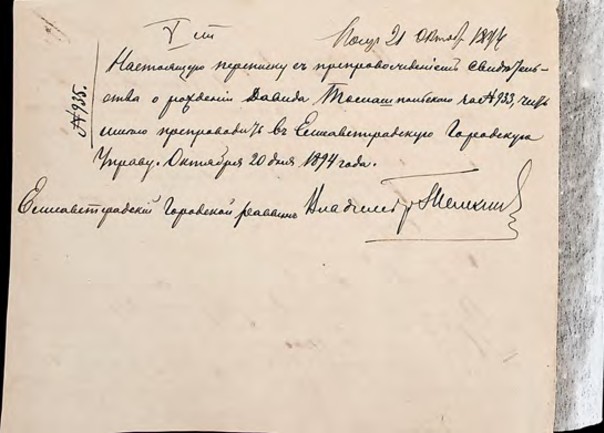 V ст
Пол. 21 Октяб 1894
№935.
Настоящую переписку съ препровожденіемъ свидѣтель-
ства о рожденіи Давида Томашпольскаго за №933, честь
имѣю препроводить въ Елисаветградскую Городскую
Управу. Октября 20 дня 1894 года.
Елисаветградскій Городской раввинъ Владиміръ